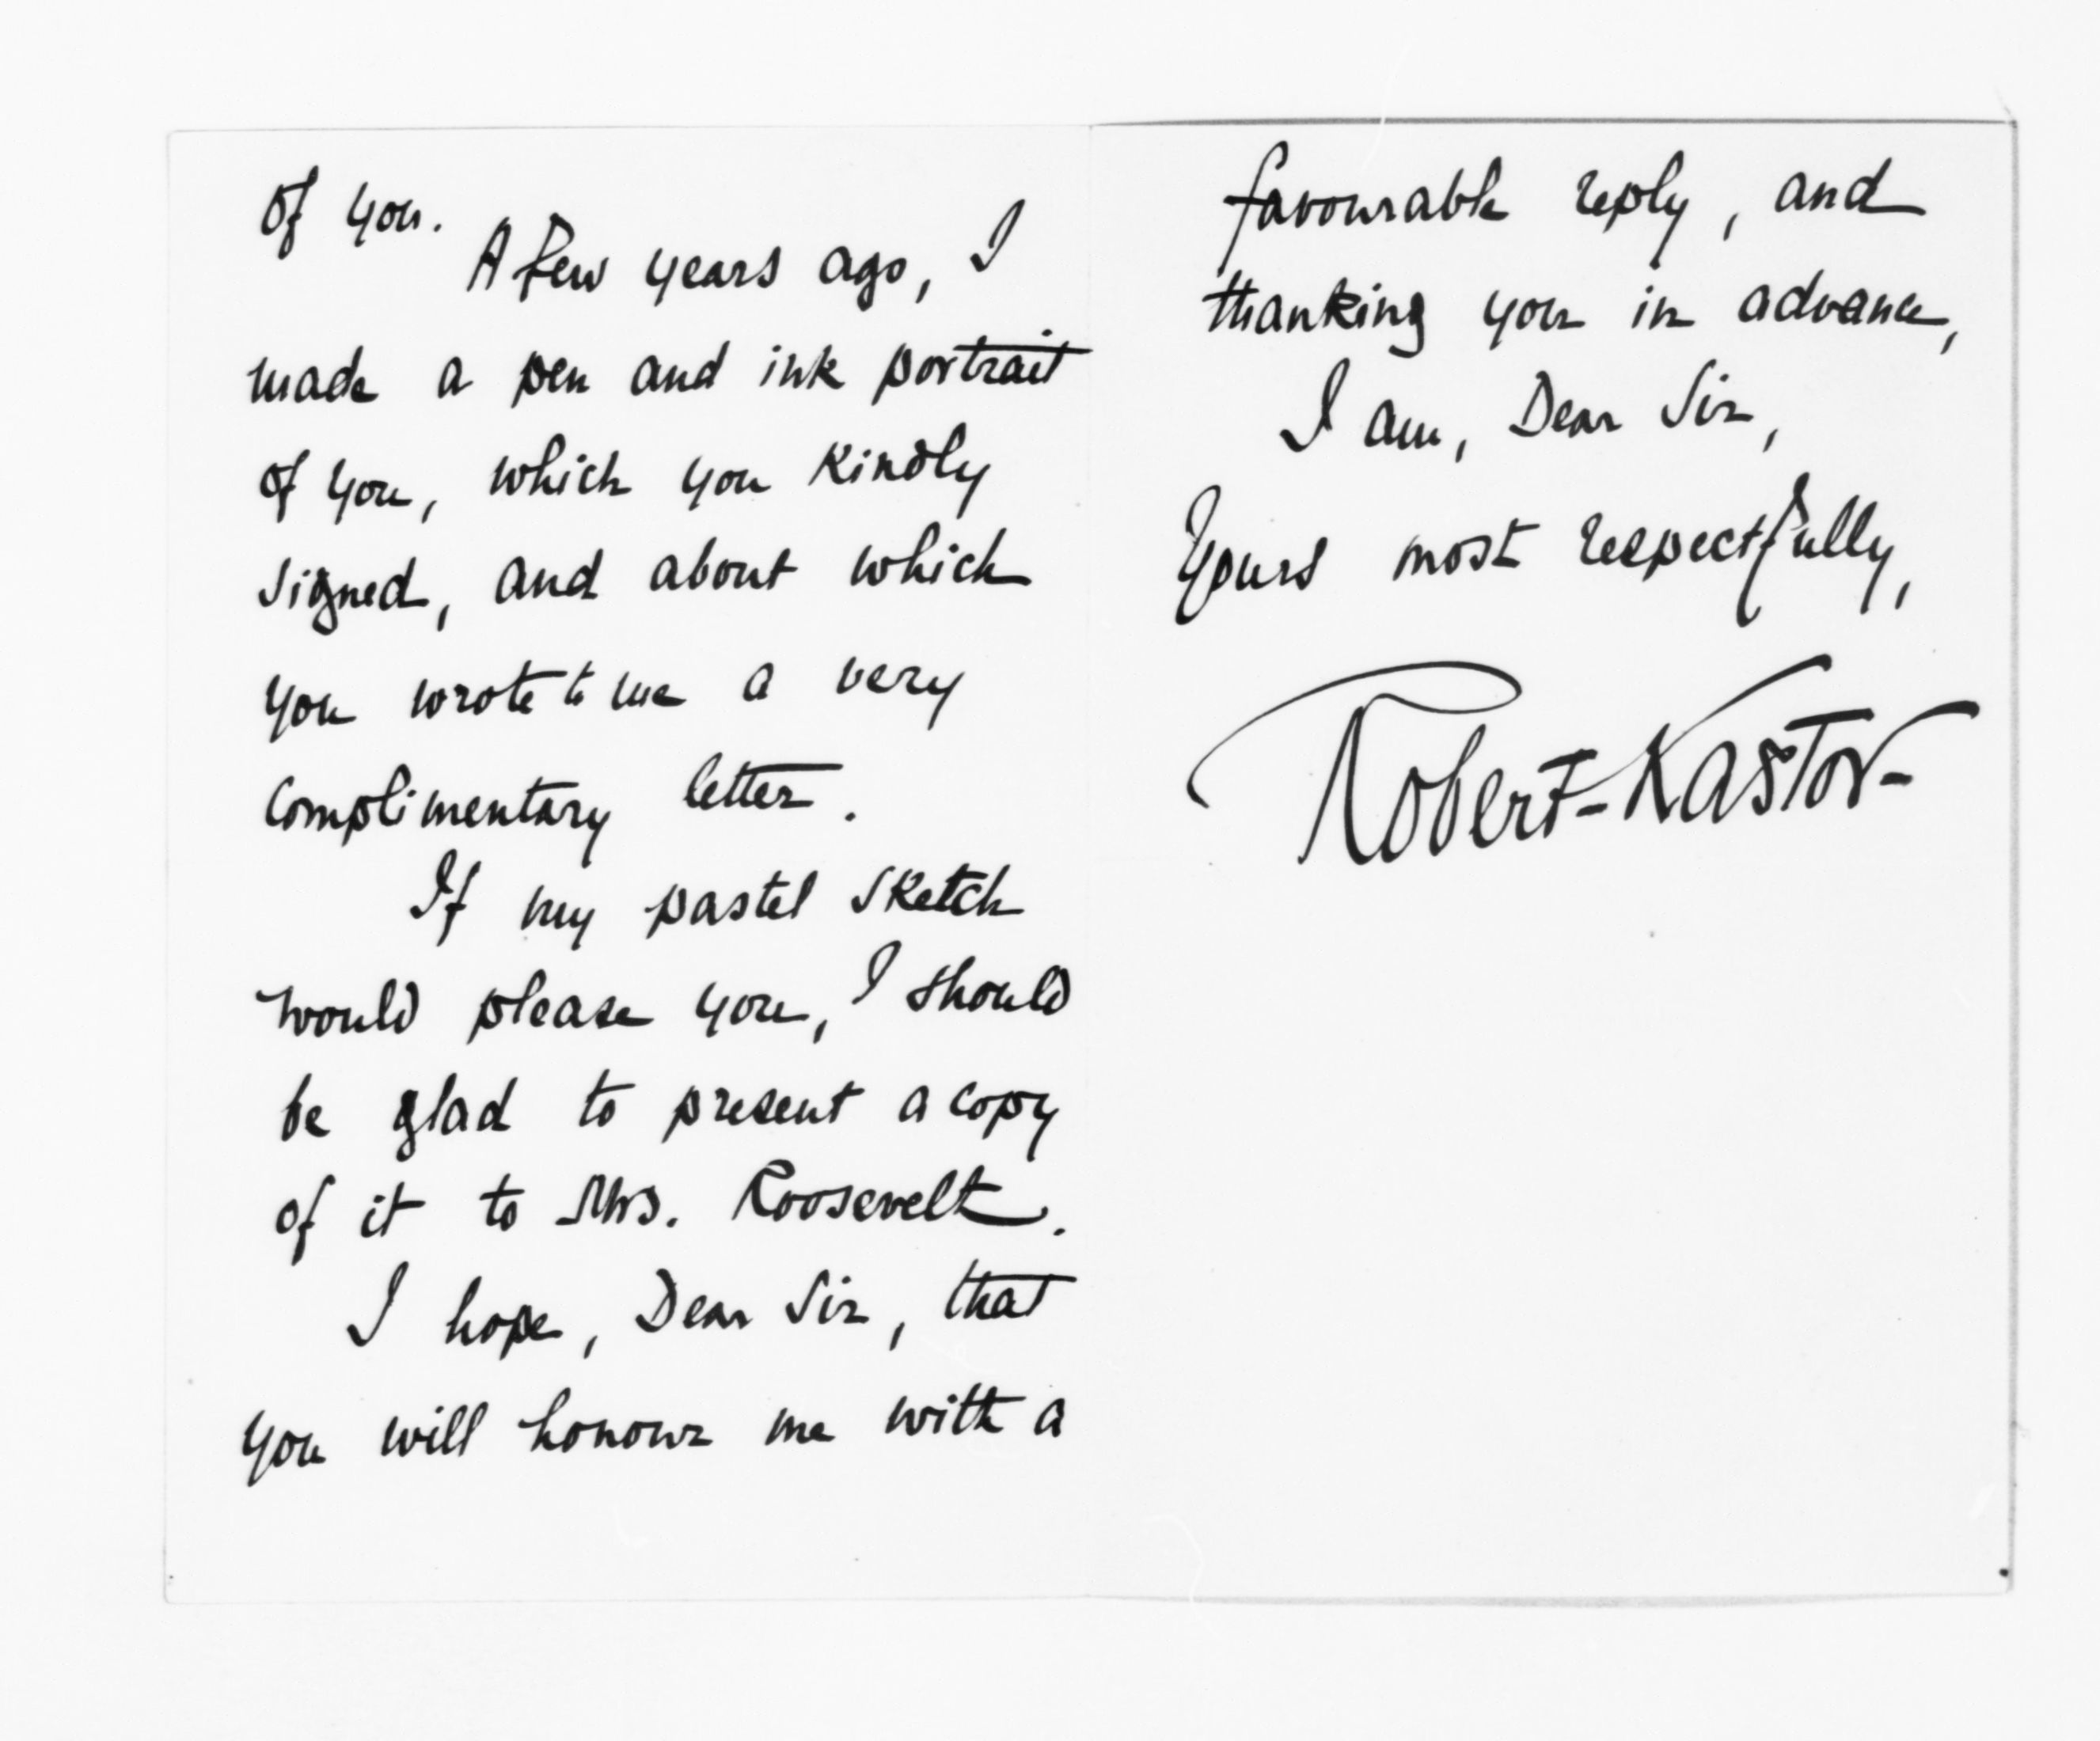 of you.
A few years ago, I
made a pen and ink portrait
of you, which you kindly
signed, and about which
you wrote to me a very
complimentary letter.
If my pastel sketch
would please you, I should
be glad to present a copy
of it to Mrs. Roosevelt.
I hope, Dear Sir, that
you will honour me with a
favourable reply, and
thanking you in advance,
I am, Dear Sir,
Yours most respectfully,
Robert-Kastor-